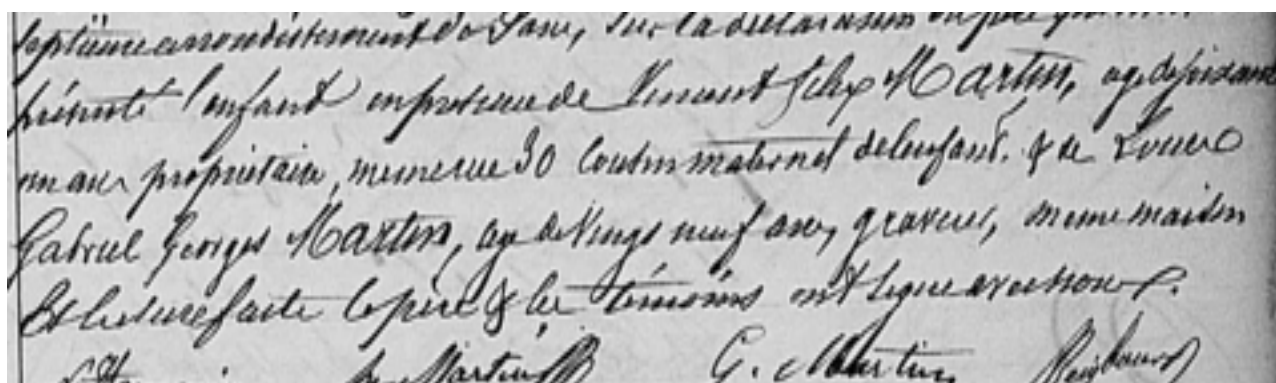 Septième arrondissement de Paris, sur la déclaration du père qui
présenté l'enfant en présence de Vincent Félix Martin, agé de soixante
un ans propriétaire, meme rue 30 cousin maternel de l'enfant. & de Louis
Gabriel Georges Martin, agé de Vingt neuf ans, graveur, meme maison
Et lecture faite le père & les témoins ont signé avec nous.
Martin G. Martin